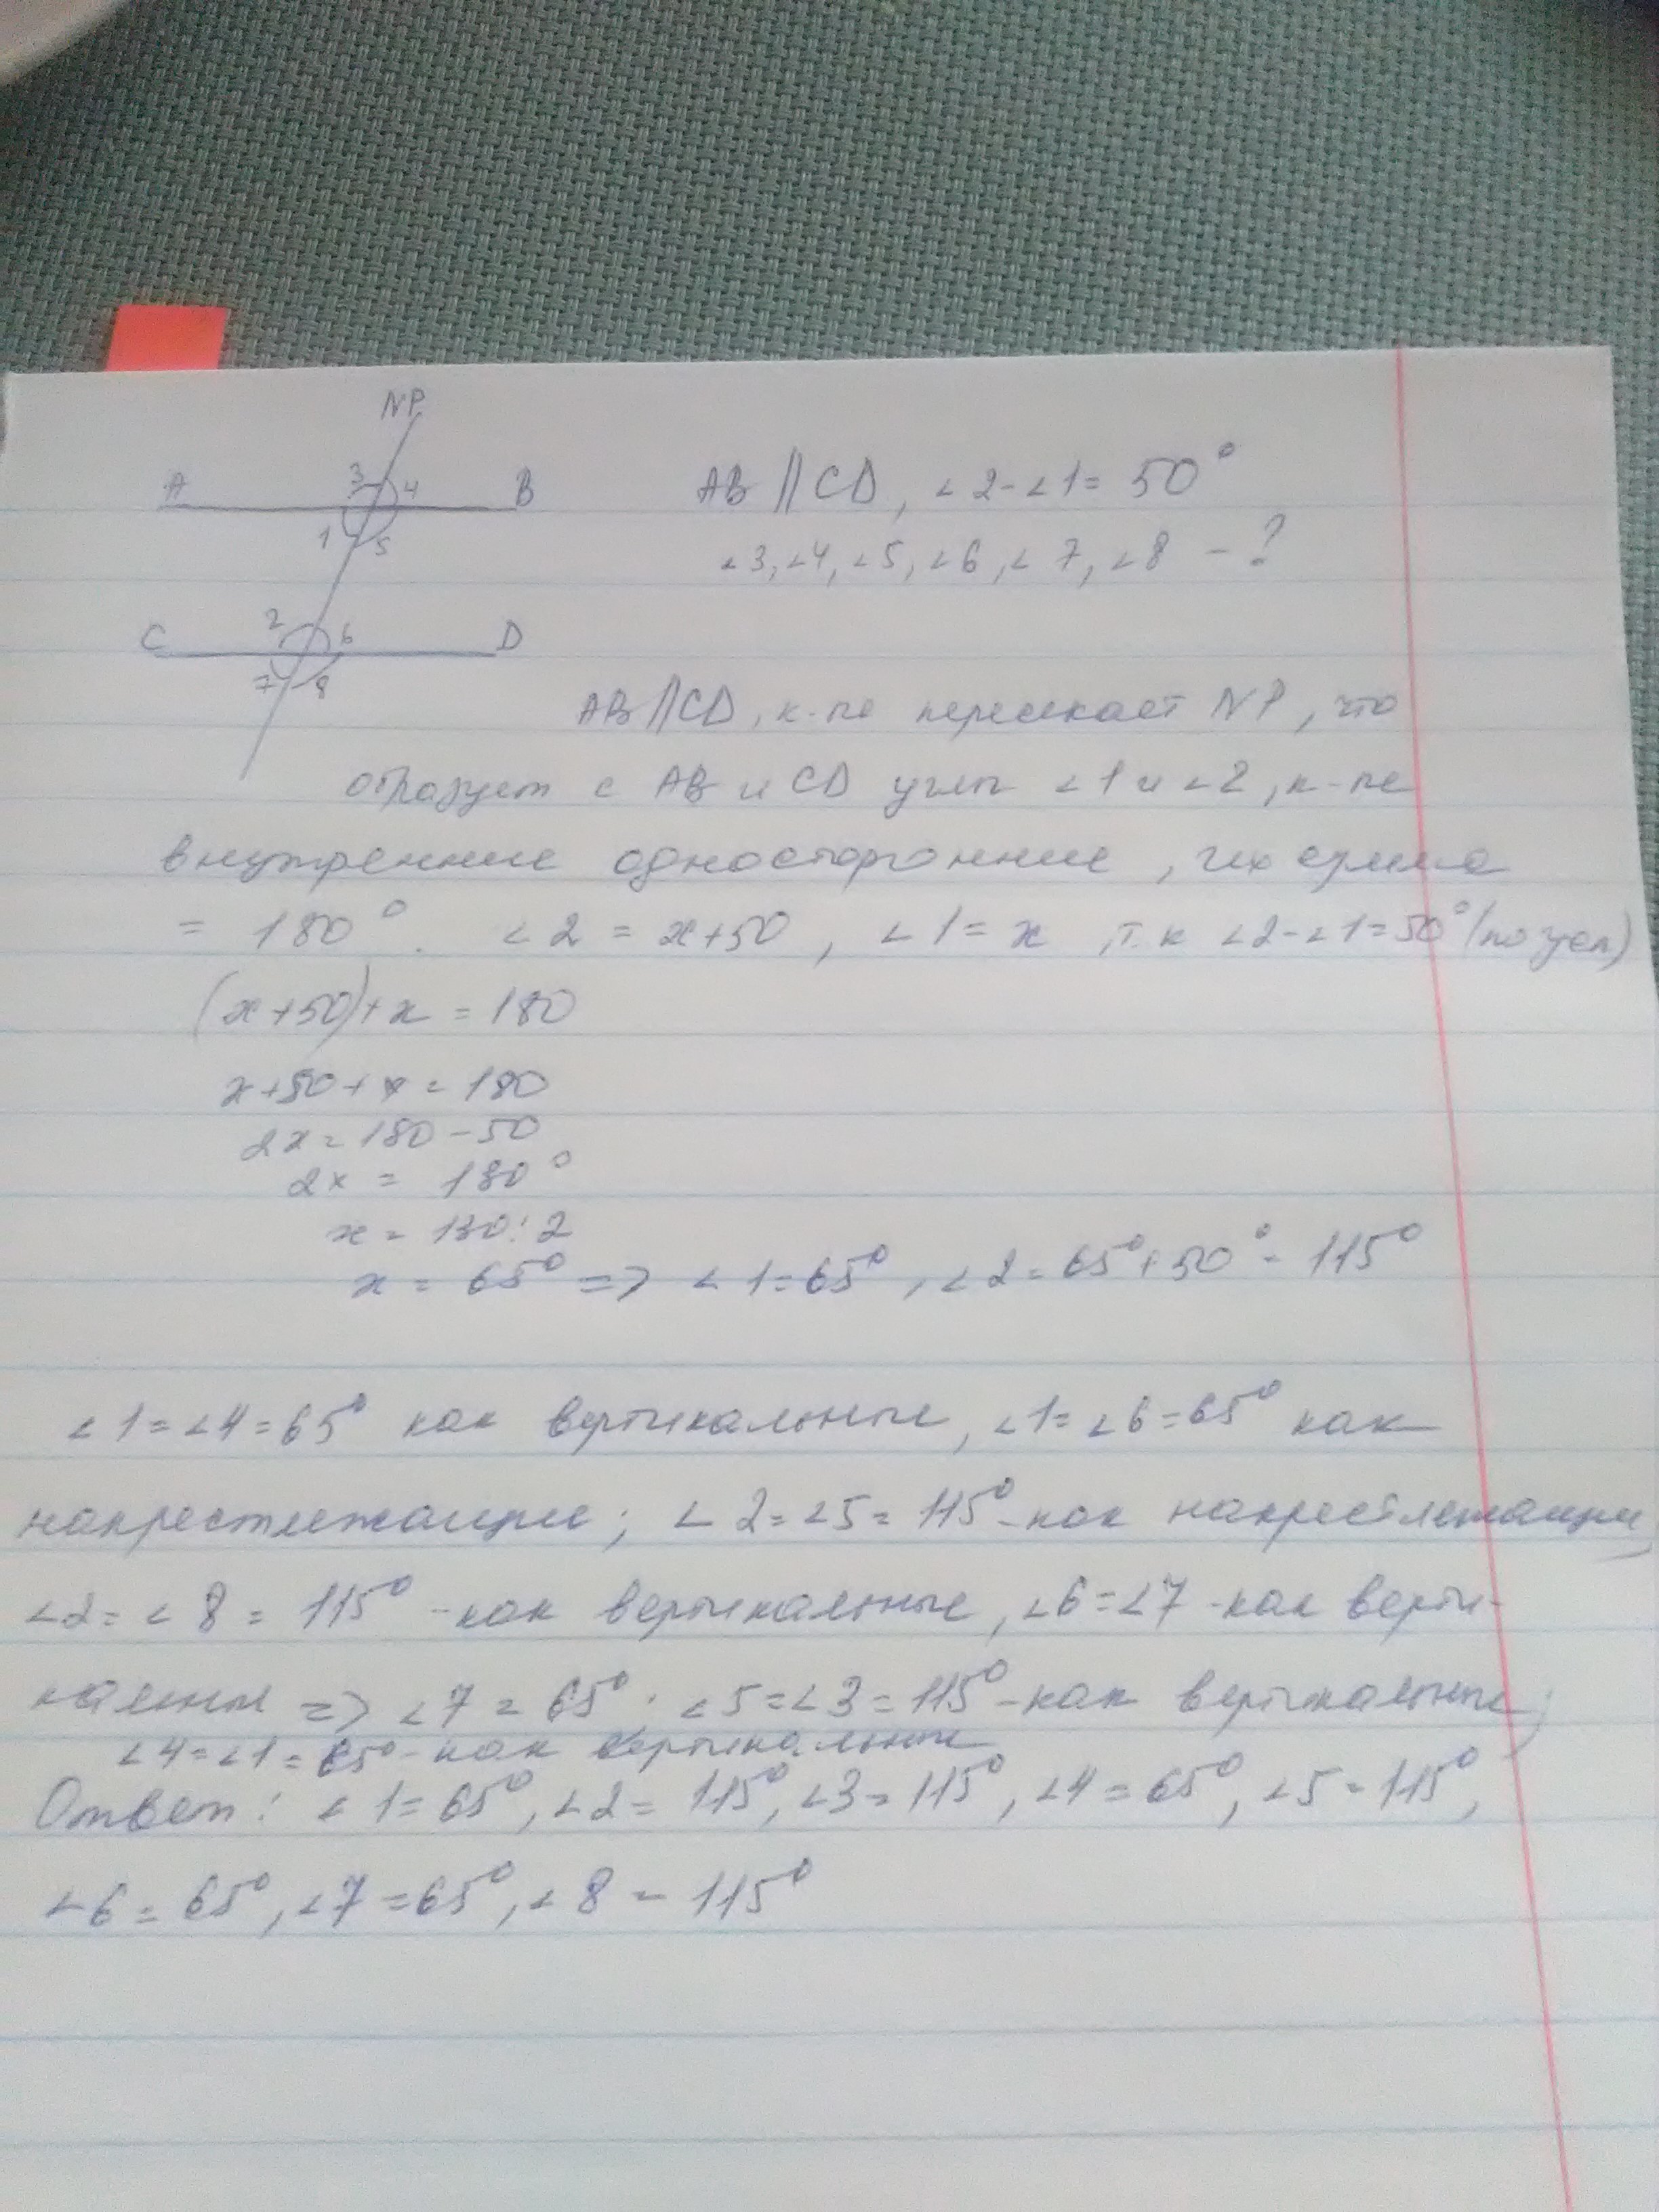 NP
A 3 4 B
1 5
AB || CD, ∠2-∠1= 50°
∠3, ∠4, ∠5, ∠6, ∠7, ∠8 - ?
C 2 6 D
7 8
AB || CD, к-ые пересекает NP, что
образует с AB и CD углы ∠1 и ∠2, к-ые
внутренние односторонние, их сумма
= 180°. ∠2 = x+50, ∠1 = x, т.к ∠2-∠1=50° (по усл)
(x+50)+x = 180
x+50+x = 180
2x = 180-50
2x = 180°
x = 130:2
x = 65° => ∠1=65°, ∠2= 65°+50° = 115°
∠1=∠4=65° как вертикальные, ∠1=∠6=65° как
накрестлежащие; ∠2=∠5= 115° - как накрестлежащие,
∠2=∠8= 115° - как вертикальные, ∠6=∠7 - как верти-
кальные => ∠7 = 65°. ∠5=∠3=115° - как вертикальные;
∠4=∠1=65° - как вертикальные
Ответ: ∠1=65°, ∠2= 115°, ∠3=115°, ∠4=65°, ∠5=115°,
∠6= 65°, ∠7=65°, ∠8= 115°